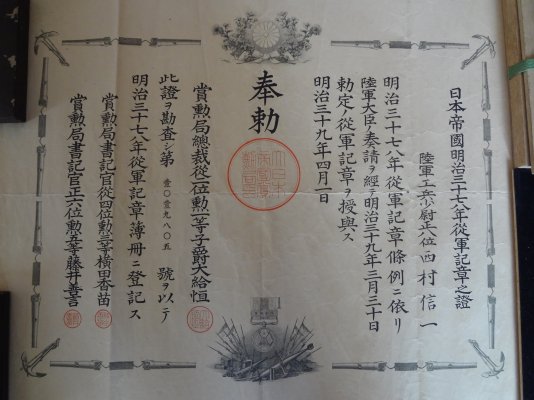 日本帝國明治三十七八年從軍記章之證
陸軍工兵少尉正八位西村信一
明治三十七八年從軍記章條例ニ依リ
陸軍大臣ノ奏請ヲ經テ明治三十九年三月三十日
勅定ノ從軍記章ヲ授與ス
明治三十九年四月一日
奉勅
賞勲局總裁從二位勲一等子爵大給恒
此證ヲ勘査シ第壹〇壹九八〇五號ヲ以テ
明治三十七八年從軍記章簿冊ニ登記ス
賞勲局書記官從四位勲三等横田香苗
賞勲局書記官正六位勲五等藤井善言